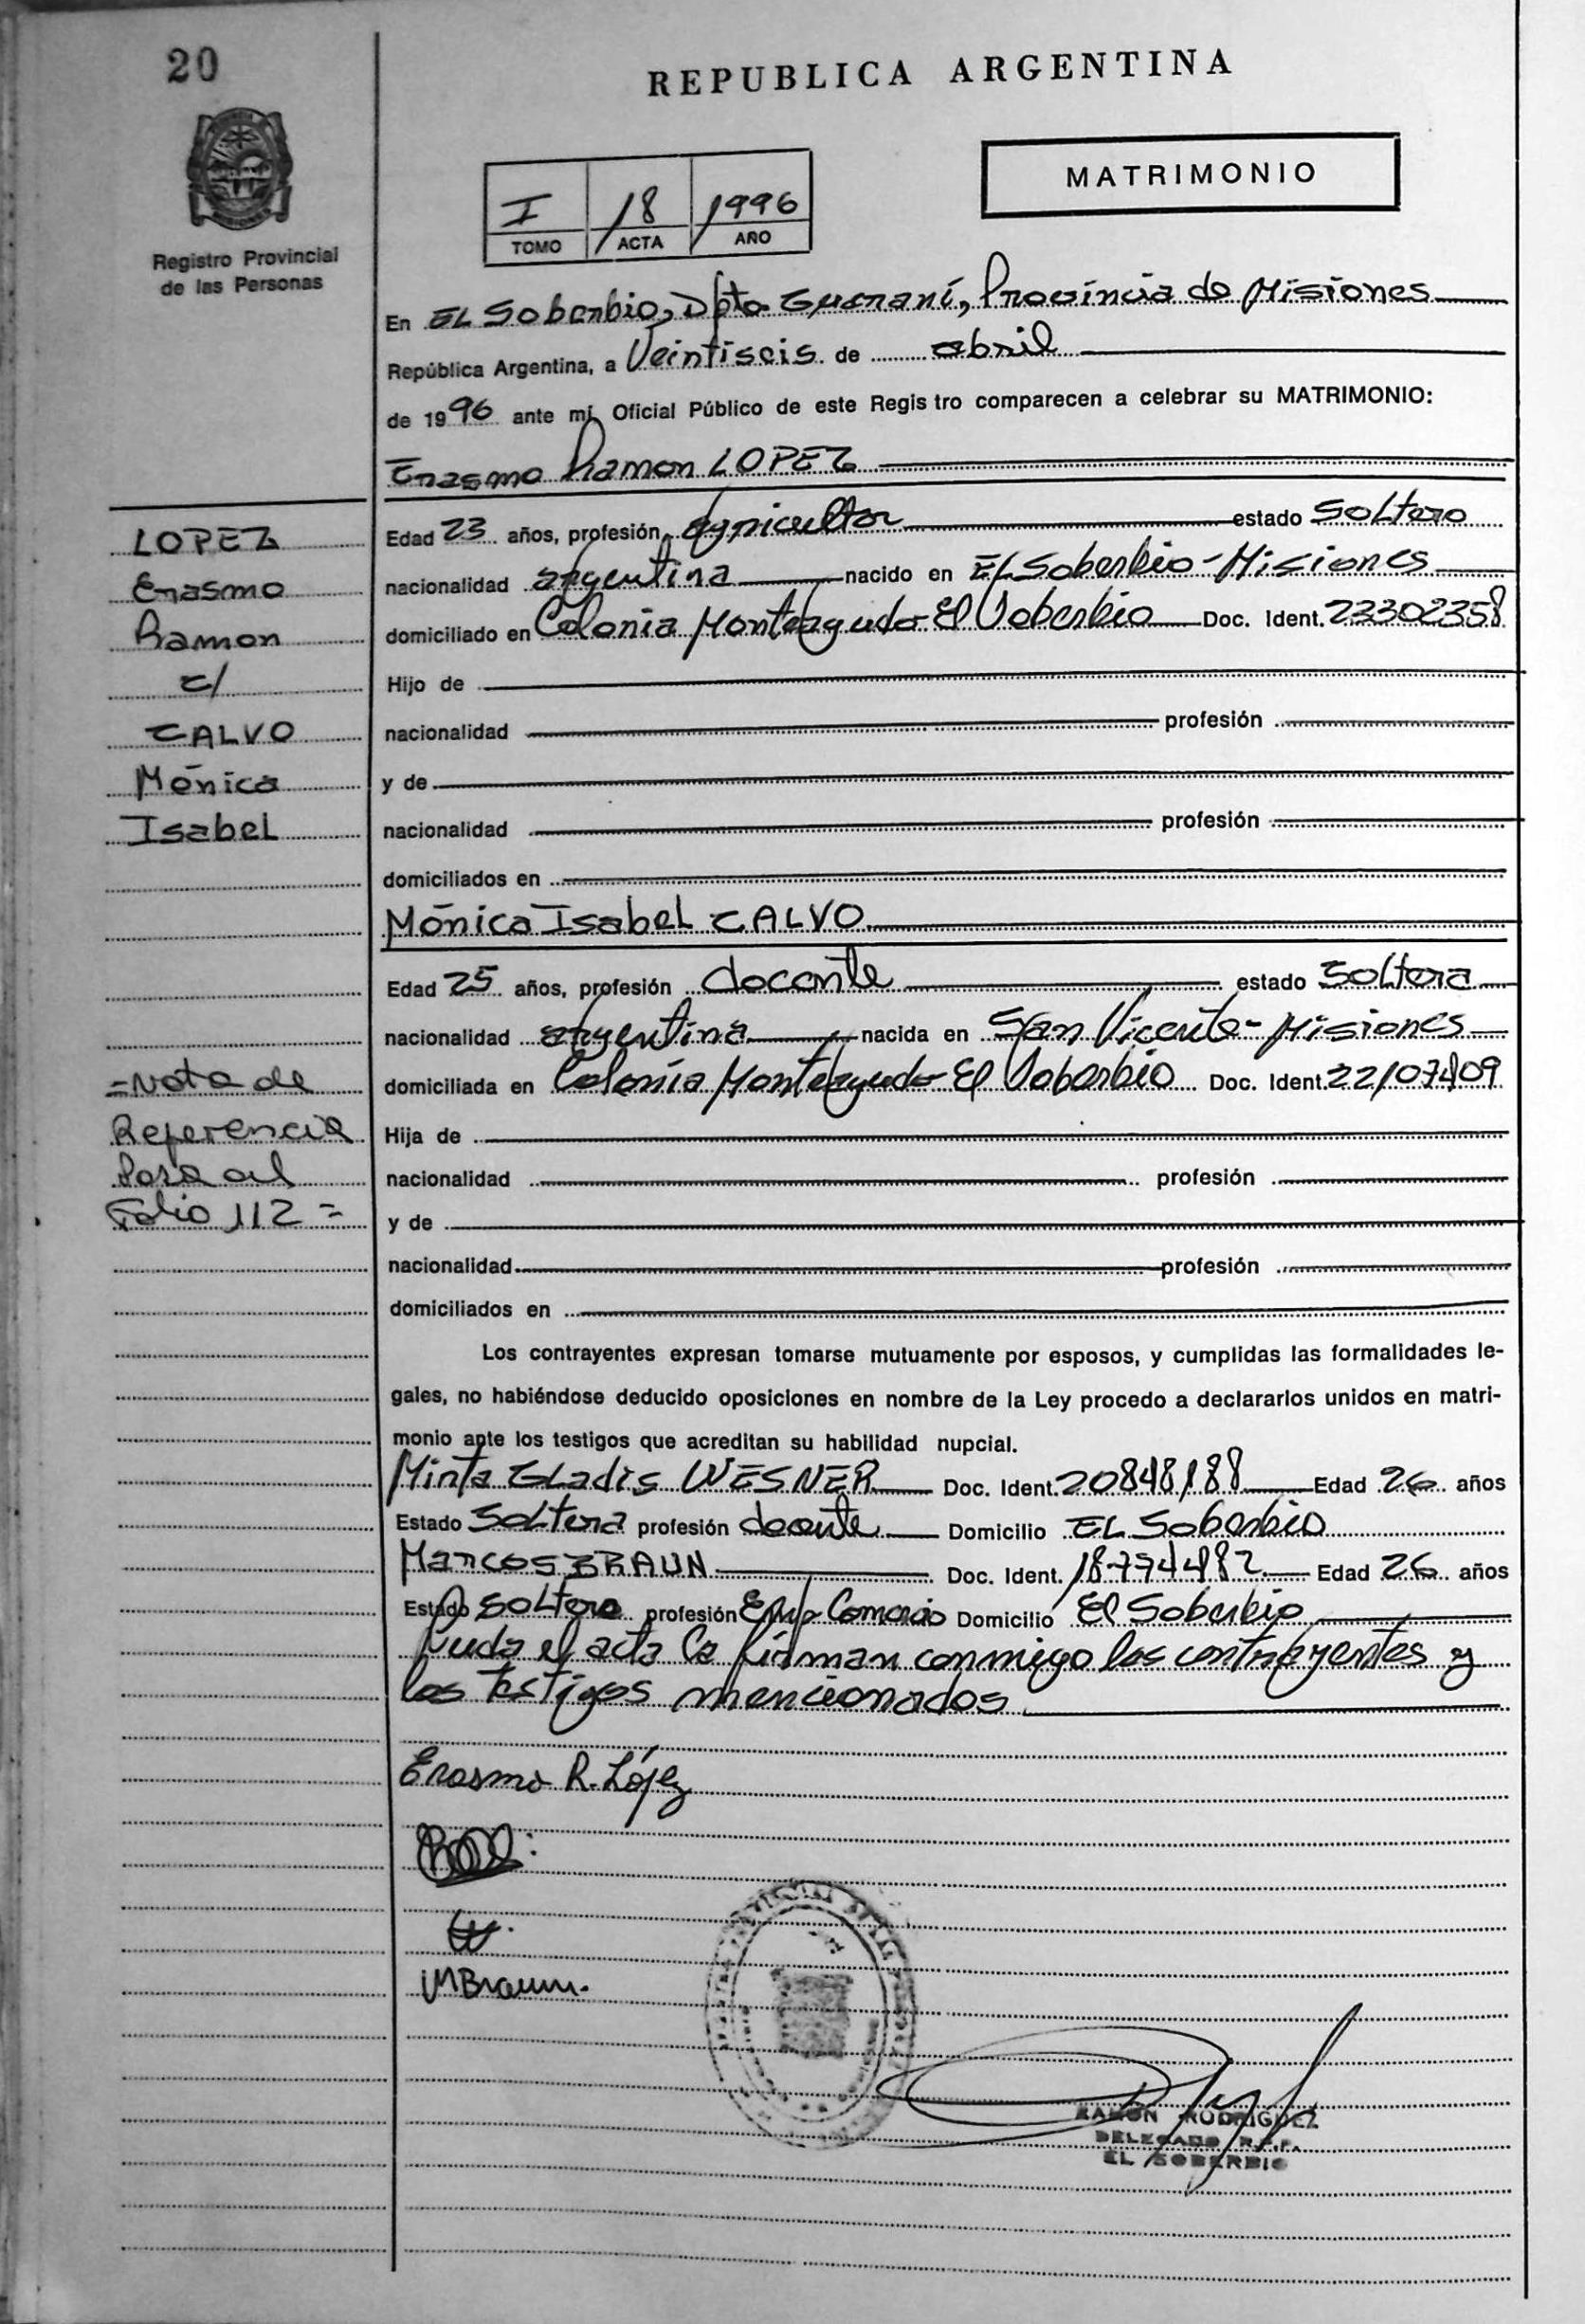 20
REPUBLICA ARGENTINA
MATRIMONIO
I 18 1996
TOMO ACTA AÑO
Registro Provincial
de las Personas
En EL Soberbio, Dpto Guaraní, Provincia de Misiones
República Argentina, a Veintiseis de abril
de 1996 ante mi, Oficial Público de este Registro comparecen a celebrar su MATRIMONIO:
Erasmo Ramon LOPEZ
LOPEZ
Erasmo
Ramon
c/
CALVO
Mónica
Isabel
Edad 23 años, profesión, agricultor estado Soltero
nacionalidad argentina nacido en EL Soberbio - Misiones
domiciliado en Colonia Monteagudo El Soberbio Doc. Ident. 23302358
Hijo de
nacionalidad profesión
y de
nacionalidad profesión
domiciliados en
Mónica Isabel CALVO
Edad 25 años, profesión docente estado Soltera
nacionalidad argentina nacida en San Vicente - Misiones
domiciliada en Colonia Monteagudo El Soberbio Doc. Ident. 22107409
=Nota de
Referencia
Pasa al
Folio 112=
Hija de
nacionalidad profesión
y de
nacionalidad profesión
domiciliados en
Los contrayentes expresan tomarse mutuamente por esposos, y cumplidas las formalidades le-
gales, no habiéndose deducido oposiciones en nombre de la Ley procedo a declararlos unidos en matri-
monio ante los testigos que acreditan su habilidad nupcial.
Mirta Gladis WESNER Doc. Ident. 20848188 Edad 26 años
Estado Soltera profesión docente Domicilio EL Soberbio
Marcos BRAUN Doc. Ident. 18794482 Edad 26 años
Estado Soltero profesión Emp Comercio Domicilio El Soberbio
Leida el acta la firman conmigo los contrayentes y
los testigos mencionados
Erasmo R. López
MBraun.
RAMON RODRIGUEZ
DELEGADO R.P.P.
EL SOBERBIO